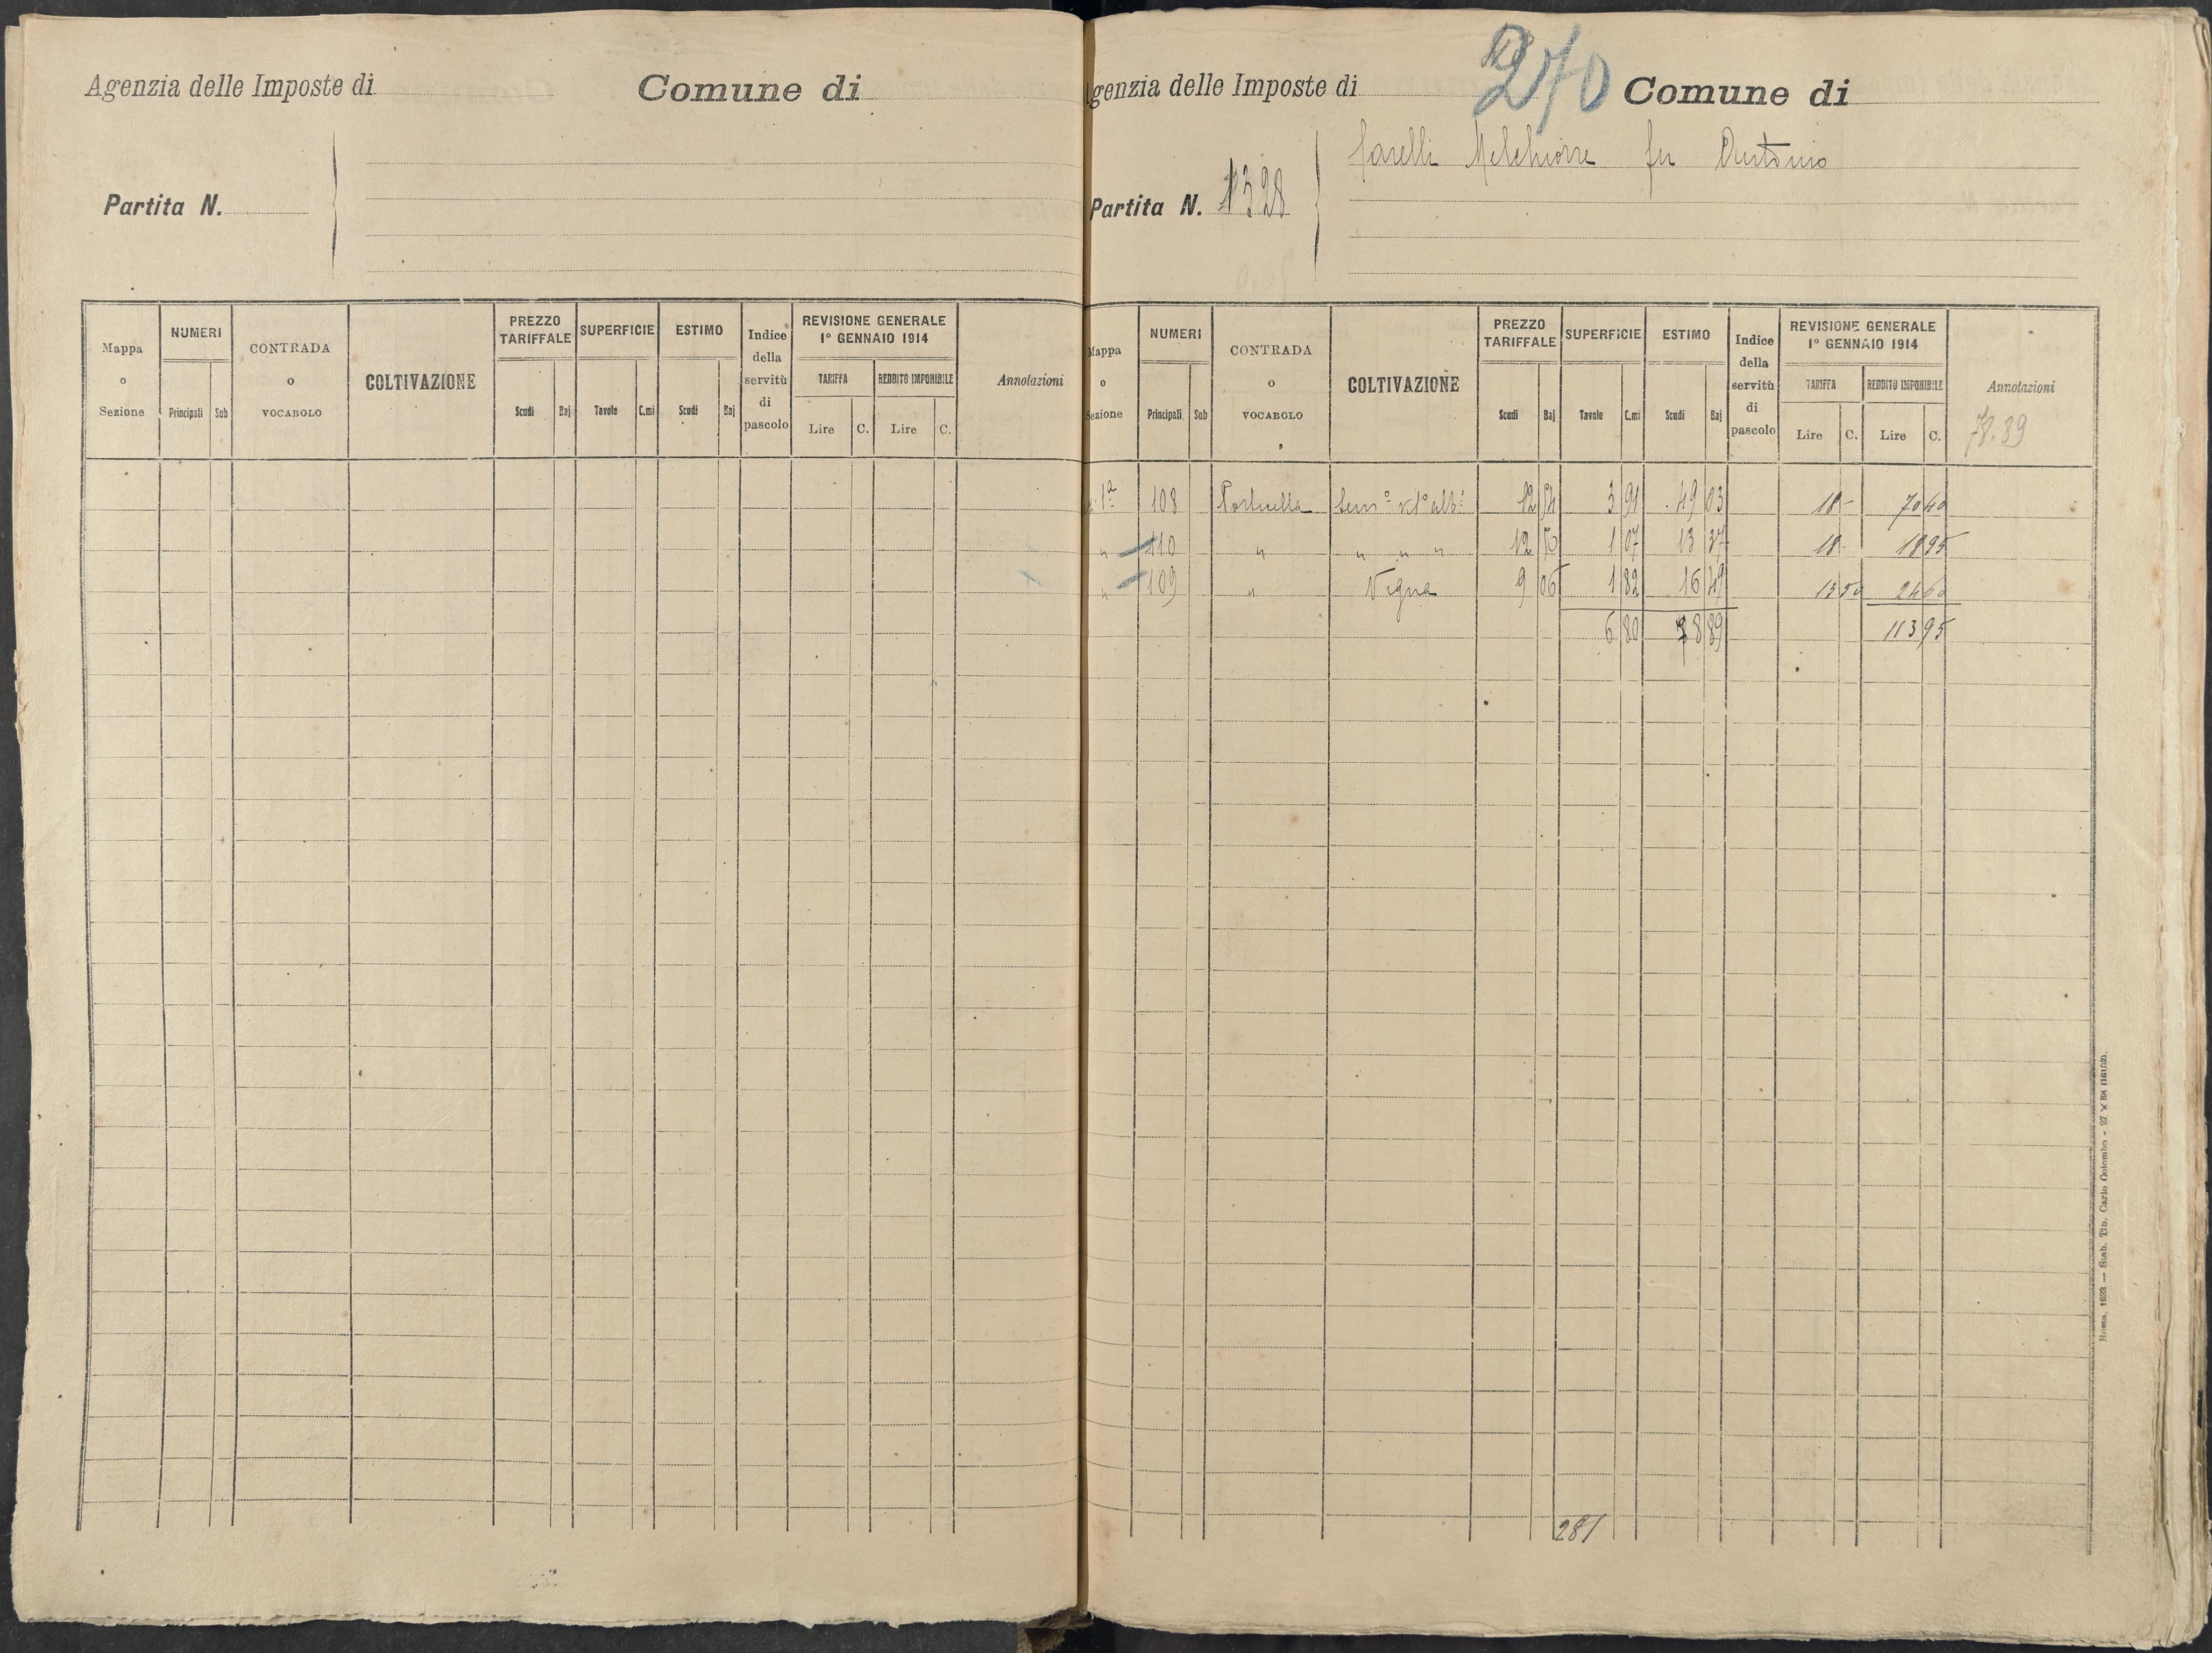 Agenzia delle Imposte di
Comune di
Partita N.
Mappa o Sezione
NUMERI
Principali
Sub
CONTRADA o VOCABOLO
COLTIVAZIONE
PREZZO TARIFFALE
Scudi
Baj
SUPERFICIE
Tavole
C.mi
ESTIMO
Scudi
Baj
Indice della servitù di pascolo
REVISIONE GENERALE
1º GENNAIO 1914
TARIFFA
REDDITO IMPONIBILE
Lire
C.
Lire
C.
Annotazioni
270
genzia delle Imposte di
Comune di
Partita N. 1328
Melchiorre fu Antonio
Mappa o Sezione
NUMERI
Principali
Sub
CONTRADA o VOCABOLO
COLTIVAZIONE
PREZZO TARIFFALE
Scudi
Baj
SUPERFICIE
Tavole
C.mi
ESTIMO
Scudi
Baj
Indice della servitù di pascolo
REVISIONE GENERALE
1º GENNAIO 1914
TARIFFA
REDDITO IMPONIBILE
Lire
C.
Lire
C.
Annotazioni
78.89
1ª 108 Sem.º alb.º 12 54 3 91 49 03 18 - 70 40
" 110 " " " " 12 50 1 07 13 37 18 - 18 95
" 109 " Vigna 9 06 1 82 16 49 13 50 24 60
6 80 78 89 113 95
281
Roma, 1923 — Stab. Tip. Carlo Colombo - 27 X 38